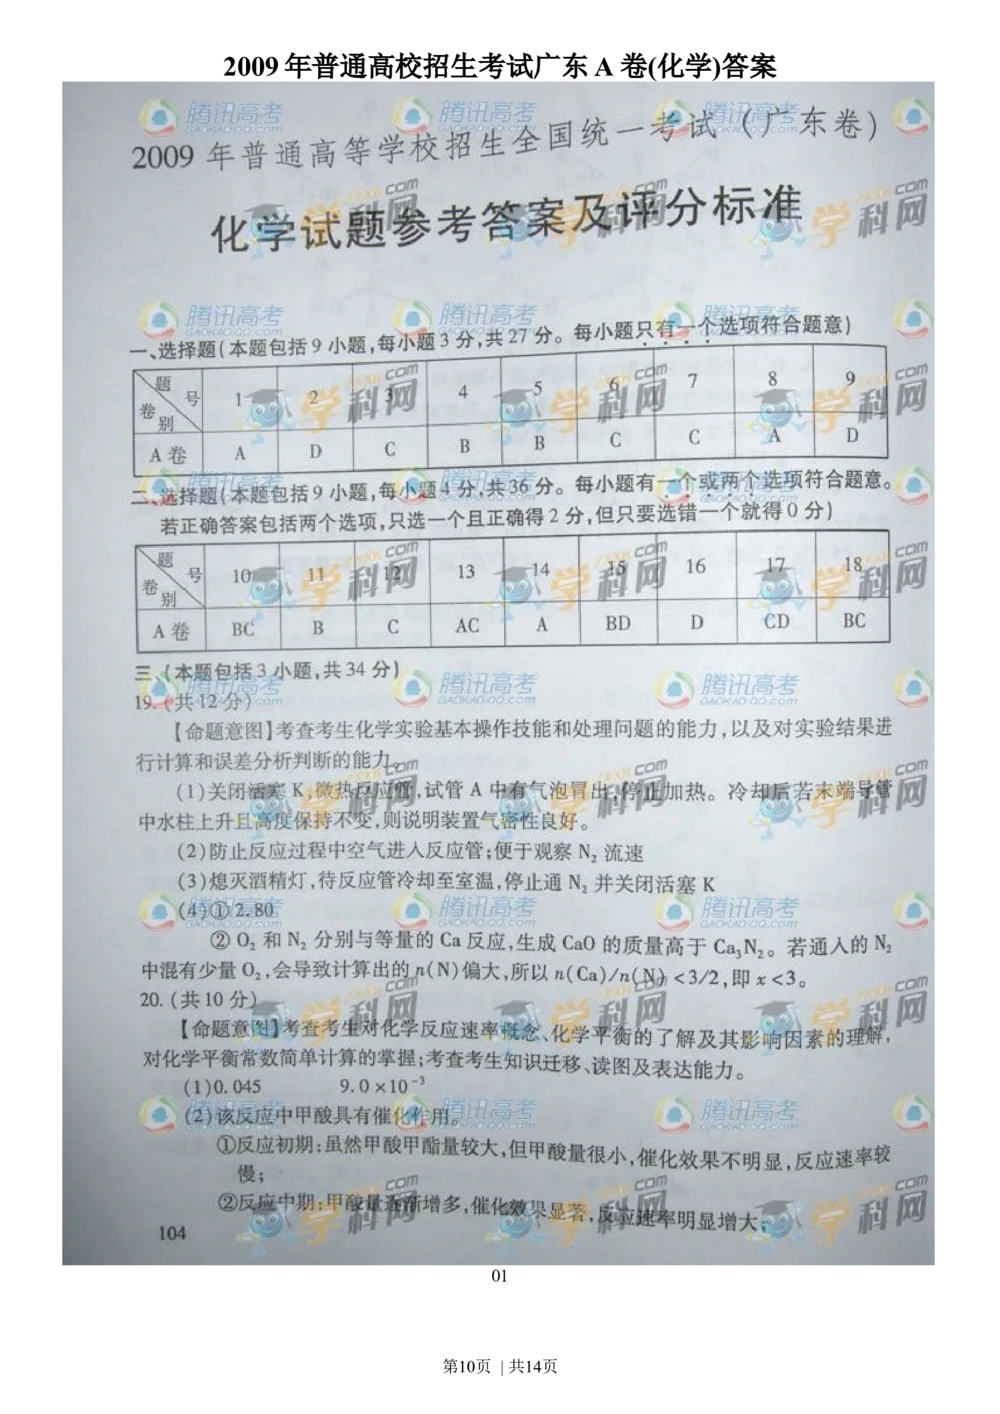 2009 年普通高校招生考试广东 A 卷(化学)答案
2009 年普通高等学校招生全国统一考试（广东卷）
化学试题参考答案及评分标准
一、选择题(本题包括9小题,每小题3分,共27分。每小题只有一个选项符合题意)
题号 卷别 1 2 3 4 5 6 7 8 9
A 卷 A D C B B C C A D
二、选择题(本题包括9小题,每小题4分,共36分。每小题有一个或两个选项符合题意。
若正确答案包括两个选项,只选一个且正确得2分,但只要选错一个就得0分)
题号 卷别 10 11 12 13 14 15 16 17 18
A 卷 BC B C AC A BD D CD BC
三、(本题包括3小题,共34分)
19.(共12分)
【命题意图】考查考生化学实验基本操作技能和处理问题的能力,以及对实验结果进
行计算和误差分析判断的能力。
(1)关闭活塞 K,微热反应管,试管 A 中有气泡冒出,停止加热。冷却后若末端导管
中水柱上升且高度保持不变,则说明装置气密性良好。
(2)防止反应过程中空气进入反应管;便于观察 N₂ 流速
(3)熄灭酒精灯,待反应管冷却至室温,停止通 N₂ 并关闭活塞 K
(4)①2.80
② O₂ 和 N₂ 分别与等量的 Ca 反应,生成 CaO 的质量高于 Ca₃N₂。若通入的 N₂
中混有少量 O₂,会导致计算出的 n(N)偏大,所以 n(Ca)/n(N)<3/2,即 x<3。
20.(共10分)
【命题意图】考查考生对化学反应速率概念、化学平衡的了解及其影响因素的理解,
对化学平衡常数简单计算的掌握;考查考生知识迁移、读图及表达能力。
(1)0.045 9.0×10⁻³
(2)该反应中甲酸具有催化作用。
①反应初期:虽然甲酸甲酯量较大,但甲酸量很小,催化效果不明显,反应速率较
慢;
②反应中期:甲酸量逐渐增多,催化效果显著,反应速率明显增大;
104
01
第10页 | 共14页